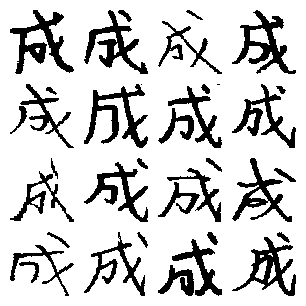 成成成成
成成成成
成成成成
成成成成